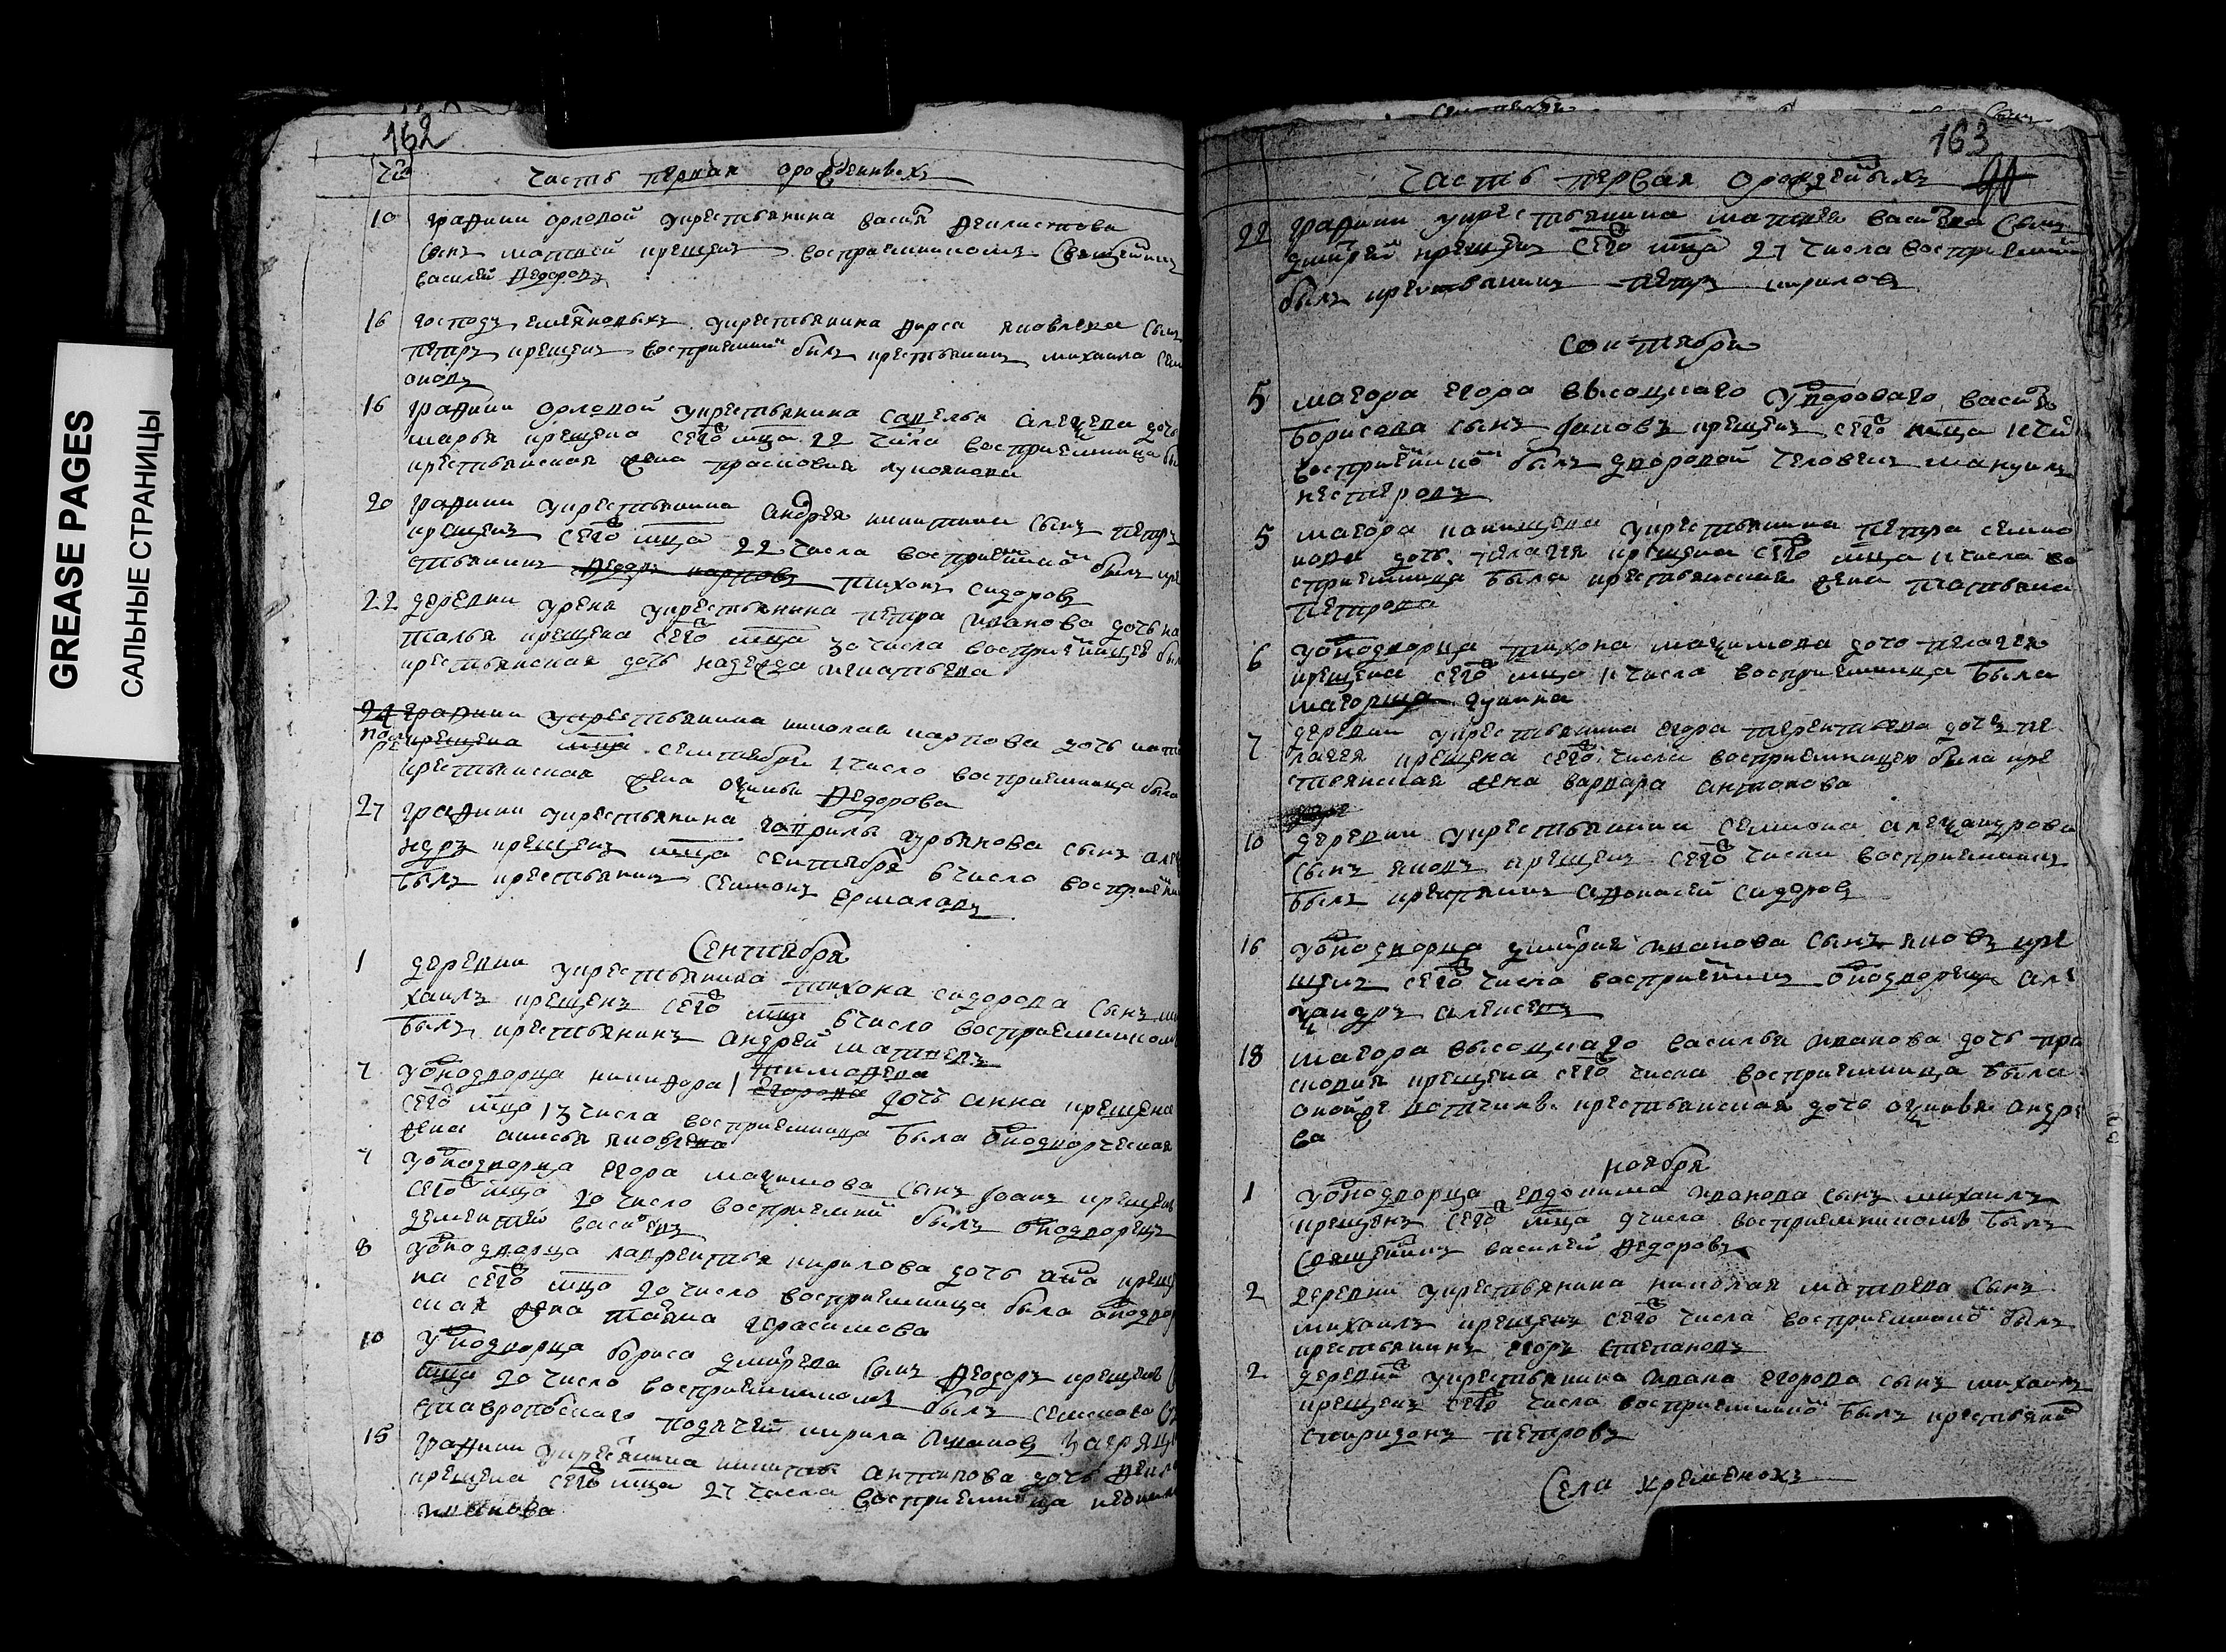 GREASE PAGES
САЛЬНЫЕ СТРАНИЦЫ
162
Часть первая орожденныхъ
10 графини орловой укрестьянина васил феилистова
сынъ матвей крещенъ восприемникомъ священикъ
василей федоровъ
16 господъ укрестьянина фирса яковлева сынъ
петръ крещенъ восприемник былъ крестьянинъ михаила сем
оновъ
16 графини орловой укрестьянина савелья алеѯева дочь
марья крещена сего мца 22 числа восприемница бы
крестьянская жена прасковья лукоянова
20 графини укрестьянина андрея никитина сынъ петръ
крещенъ сего мца 22 числа восприемникой былъ кре
стьянинъ федоръ карповъ тихонъ сидоровъ
22 деревни урена укрестьянина петра иванова дочь на
талья крещена сего мца 30 числа восприемницею был
крестьянская дочь надежда игнатьева
24 графини укрестьянина николая карпова дочь ната
крещена мца сентебря 1 число восприемница была
крестьянская жена оѯинья федорова
27 графини укрестьянина гаврилы гурьянова сынъ алеѯ
ндръ крещенъ мца сентебря 6 число восприемни
былъ крестьянинъ семионъ ермалаевъ
Сентебря
1 деревни укрестьянина тихона сидорова сынъ ми
хаилъ крещенъ сего мца 6 число восприемникомъ
былъ крестьянинъ андрей матвеевъ
7 уоднодворца никифора тимафева
егорова дочь анна крещена
сего мца 13 числа восприемница была однодворческая
жена анисья яковлева
7 уоднодворца егора маѯимова сынъ иоанъ крещенъ
сего мца 20 число восприемник былъ однодворецъ
дементей васильевъ
8 уоднодворца лаврентья кирилова дочь анна креще
на сего мца 20 число восприемница была однодвор
ская жена татьяна герасимова
10 уоднодворца бориса дмитрева сынъ феодоръ крещенъ с
мца 20 число восприемникомъ былъ
ставропольскаго подьячей кирила ивановъ
15 графини укрестьянина никиты антипова дочь фекла
крещена сего мца 27 числа восприемница
иванова
163
Часть первая орожденныхъ
22 графини укрестьянина матвея васильева сынъ
дмитрей крещенъ сего мца 27 числа восприемник
былъ крестьянинъ петръ кириловъ
Сентебря
5 маеора егора высоцкаго удвороваго васил
борисова сынъ иаковъ крещенъ сего мца 11 чи
восприемникой былъ дворовой человекъ мануилъ
нестеровъ
5 маеора укрестьянина петра семио
нова дочь пелагея крещена сего мца 11 числа во
сприемница была крестьянская жена татьяна
петрова
6 уоднодворца тихона маѯимова дочь пелагея
крещена сего мца 11 числа восприемница была
маеорша
7 деревни укрестьянина егора терентьева дочь пе
лагея крещена сего числа восприемницею была кре
стьянская жена варвара антонова
10 деревни укрестьянина семиона алеѯандрова
сынъ яковъ крещенъ сего числа восприемникъ
былъ крестянинъ афонасей сидоровъ
16 уоднодворца дмитрия иванова сынъ яковъ кре
щенъ сего числа восприемникъ однодворецъ але
ѯандръ алексеевъ
18 маеора высоцкаго василья иванова дочь пра
сковья крещена сего числа восприемница была
оной же вотчины крестьянская дочь оѯинья андре
ва
ноября
1 уоднодворца евдокима иванова сынъ михаилъ
крещенъ сего мца 9 числа восприемникомъ былъ
священникъ василей федоровъ
2 деревни укрестьянина николая матвева сынъ
михаилъ крещенъ сего числа восприемникомъ былъ
крестьянинъ егоръ степановъ
2 деревни укрестьянина ивана егорова сынъ михаилъ
крещенъ сего числа восприемникой былъ крестьяни
спиридонъ петровъ
Села хрященокъ